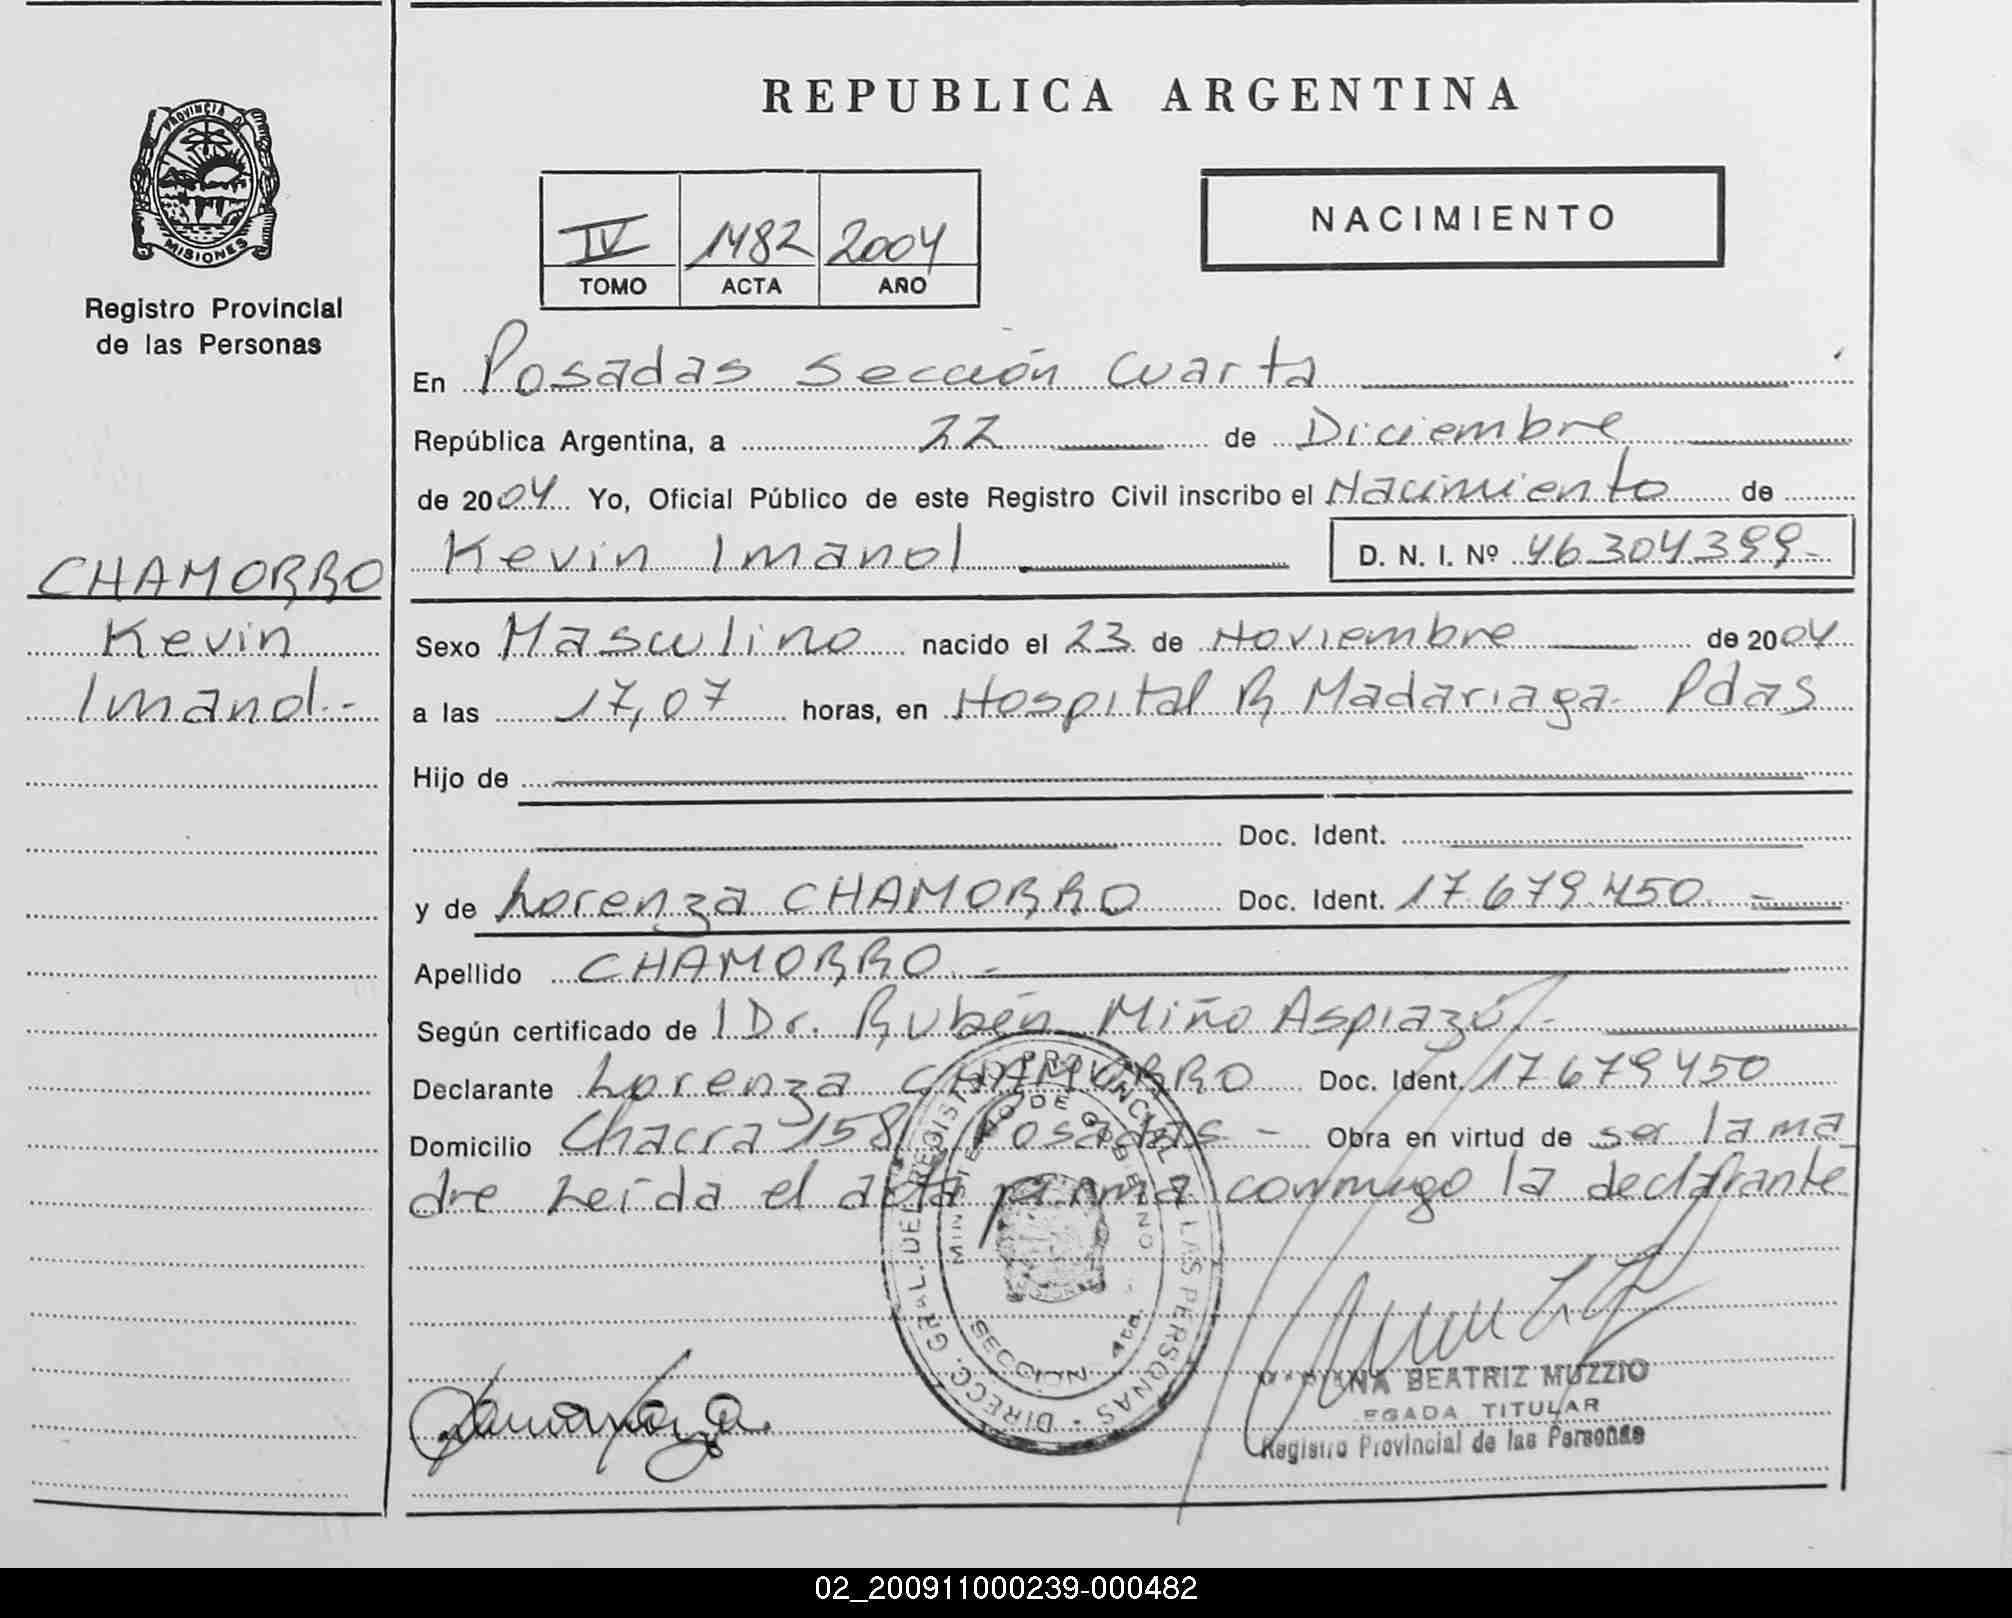 REPUBLICA ARGENTINA
PROVINCIA DE
MISIONES
Registro Provincial
de las Personas
IV 1482 2004
TOMO ACTA AÑO
NACIMIENTO
En Posadas Sección Cuarta
República Argentina, a 22 de Diciembre
de 2004 Yo, Oficial Público de este Registro Civil inscribo el Nacimiento de
Kevin Imanol D. N. I. Nº 46.304.399-
CHAMORRO
Kevin
Imanol.-
Sexo Masculino nacido el 23 de Noviembre de 2004
a las 17,07 horas, en Hospital R Madariaga- Pdas
Hijo de
Doc. Ident.
y de Lorenza CHAMORRO Doc. Ident. 17.679.450.-
Apellido CHAMORRO.-
Según certificado de l Dr. Rubén Miño Aspiazú.-
Declarante Lorenza CHAMORRO Doc. Ident. 17679450
Domicilio Chacra 158 Posadas- Obra en virtud de ser la ma
dre Leída el acta firma conmigo la declarante
DIRECC. GRAL. DEL REGISTRO PROVINCIAL DE LAS PERSONAS
MINISTERIO DE GOBIERNO
SECCION 4ta.
BEATRIZ MUZZIO
TITULAR
Registro Provincial de las Personas
02_200911000239-000482